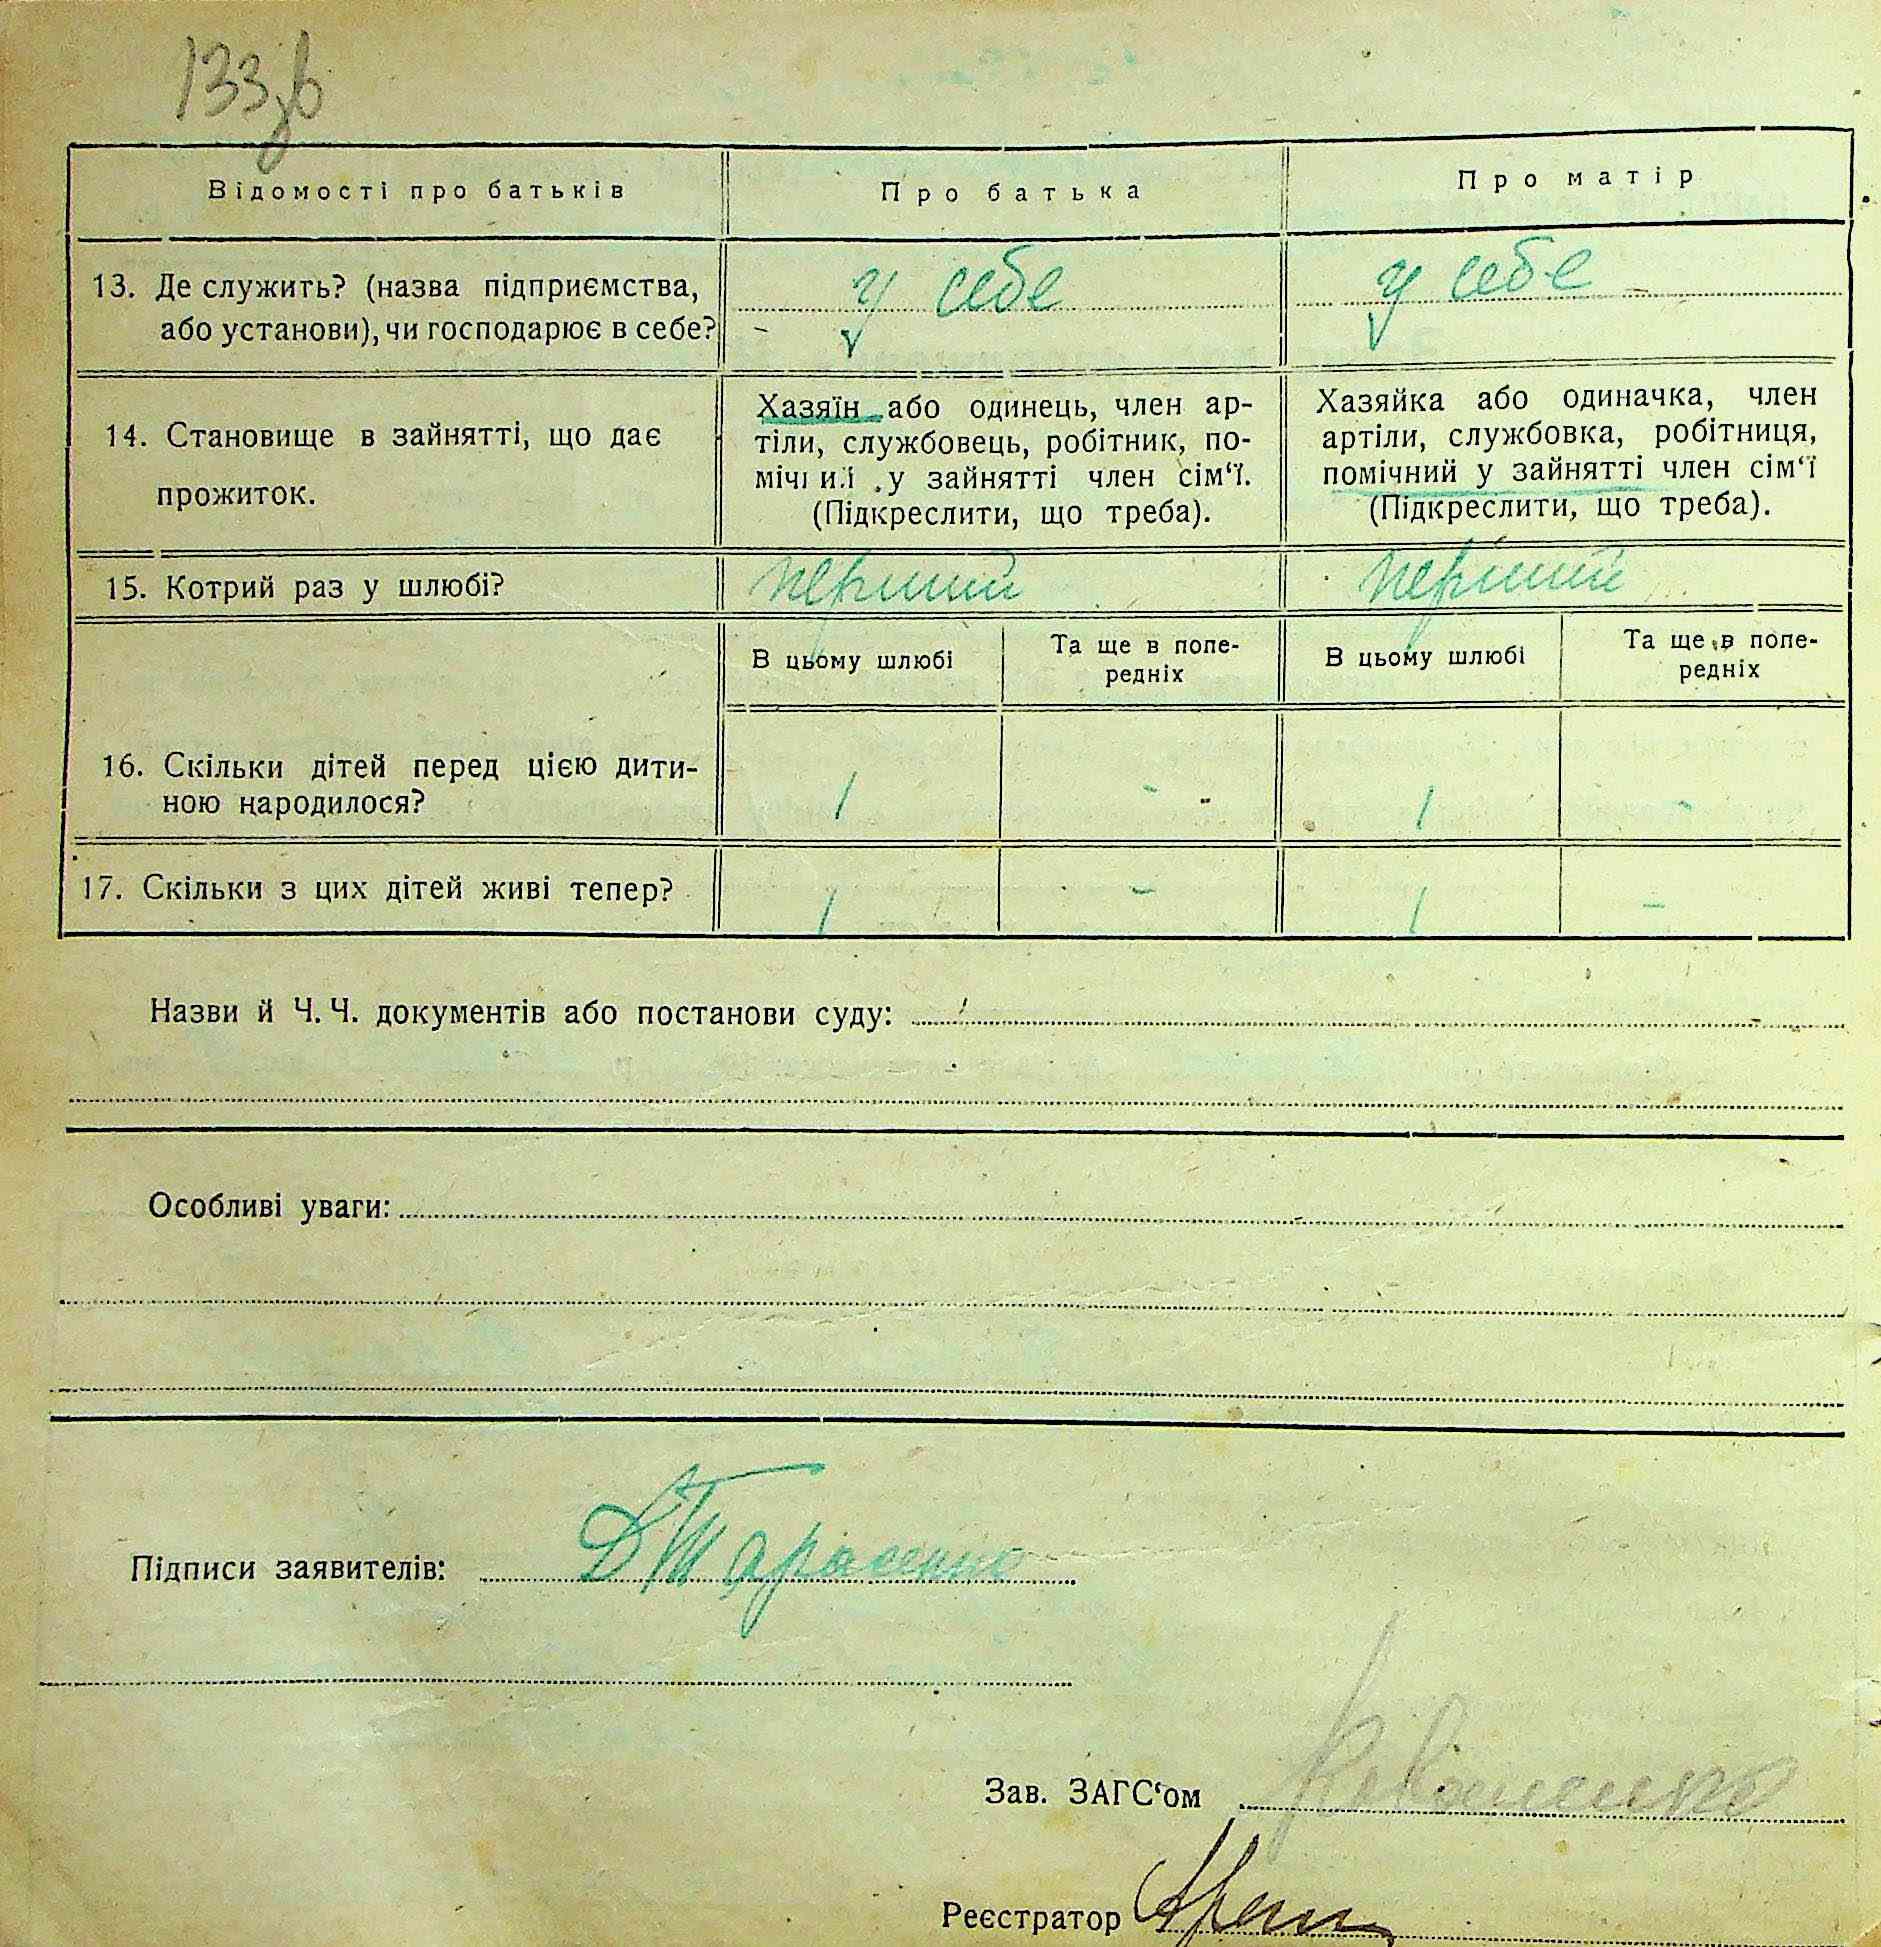 133зв
Відомості про батьків
Про батька
Про матір
13. Де служить? (назва підприємства,
або установи), чи господарює в себе?
у себе
у себе
14. Становище в зайнятті, що дає
прожиток.
Хазяїн або одинець, член ар-
тіли, службовець, робітник, по-
мічний у зайнятті член сім‘ї.
(Підкреслити, що треба).
Хазяйка або одиначка, член
артіли, службовка, робітниця,
помічний у зайнятті член сім‘ї
(Підкреслити, що треба).
15. Котрий раз у шлюбі?
перший
перший
В цьому шлюбі
Та ще в попе-
редніх
В цьому шлюбі
Та ще в попе-
редніх
16. Скільки дітей перед цією дити-
ною народилося?
1 - 1 -
17. Скільки з цих дітей живі тепер?
1 - 1 -
Назви й Ч. Ч. документів або постанови суду:
Особливі уваги:
Підписи заявителів: Д Тарасенко
Зав. ЗАГС‘ом Коваленко
Реєстратор